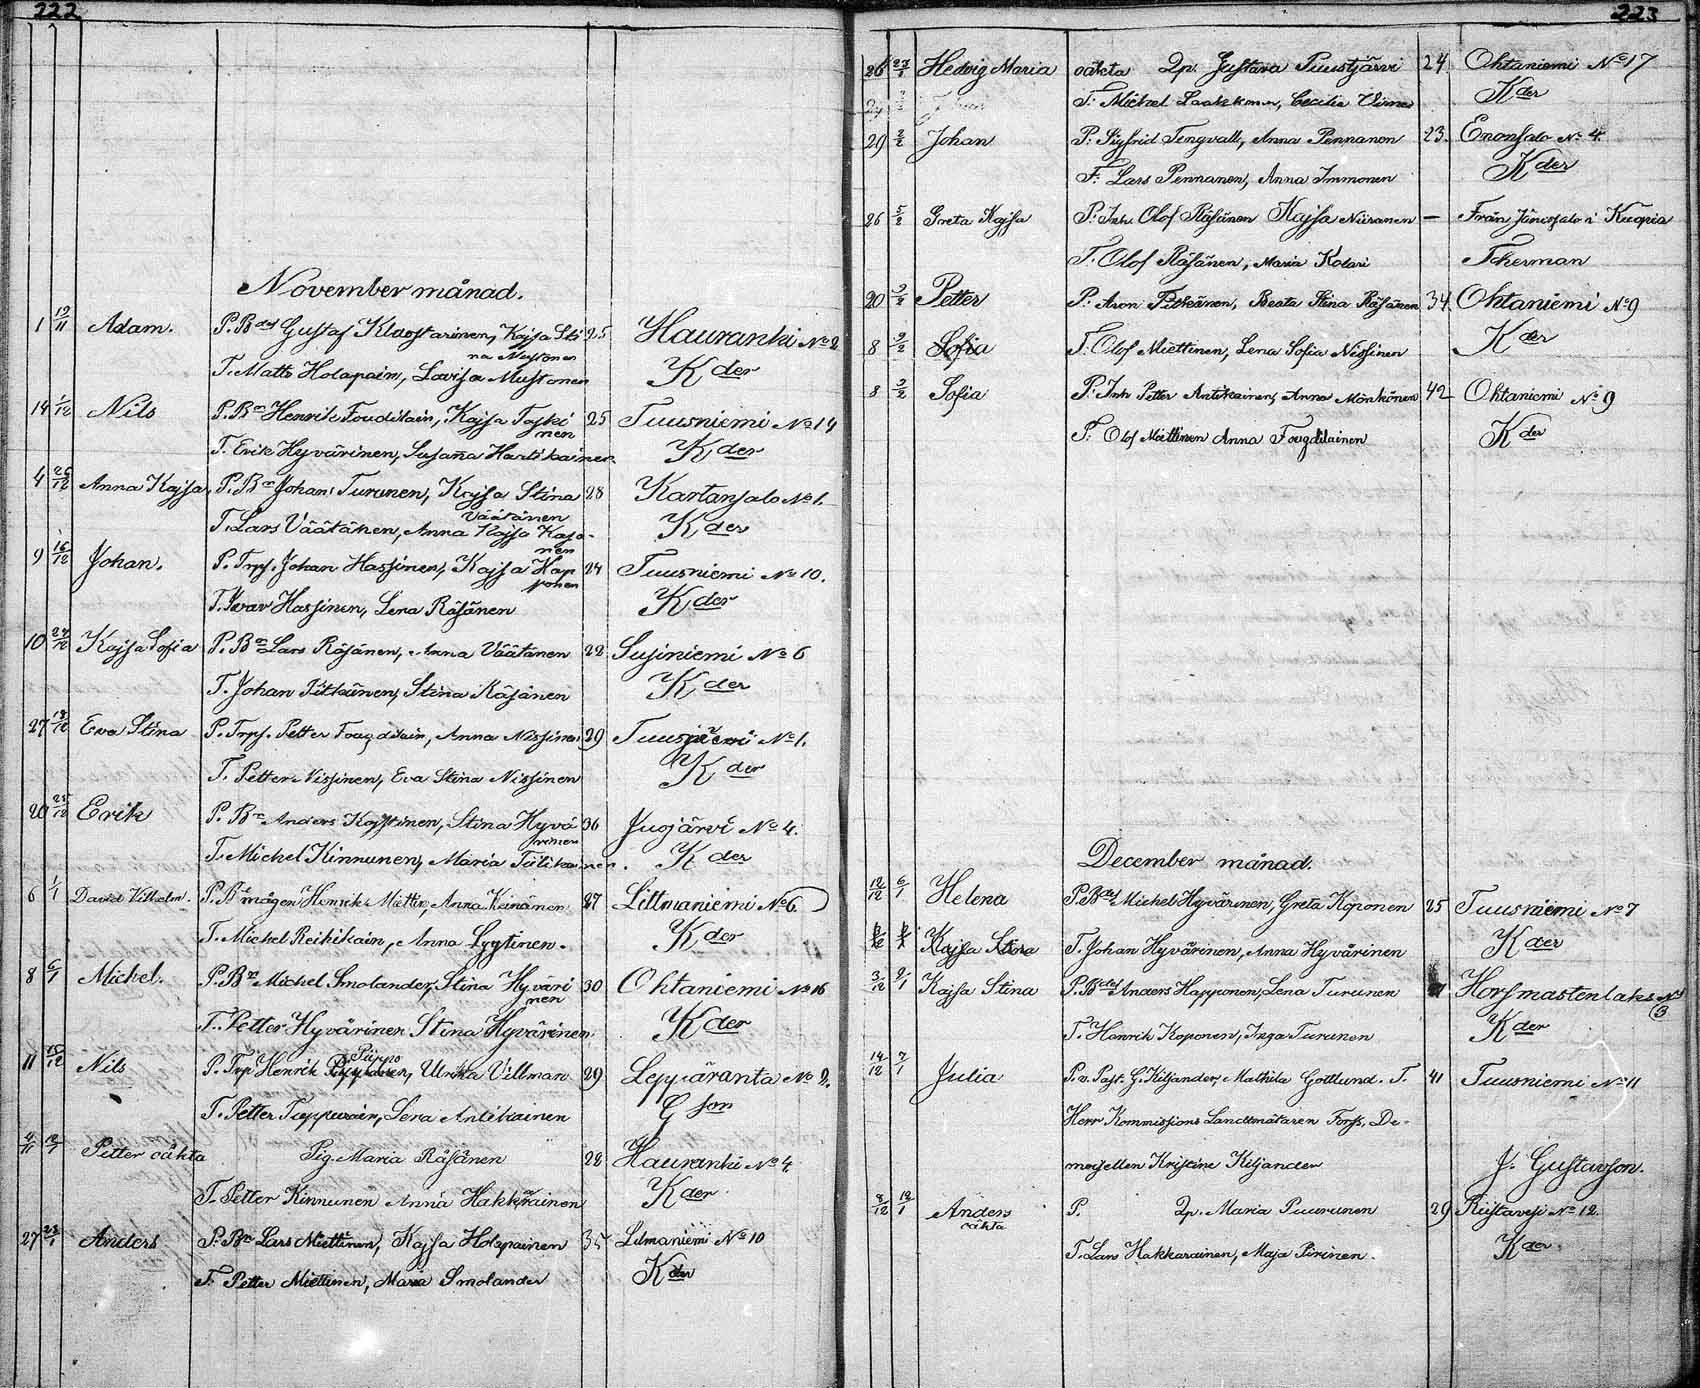 222
November månad.
1 19/11 Adam. P. Bdes Gustaf Klaostarinen, Kajsa Sti 25 Hauranki No 2
na Mustonen
T. Matts Holapain, Lovisa Mustonen Kder
14 1/12 Nils P. Bn Henrik Foudilain, Kajsa Taski 25 Tuusniemi No 14
nen
T. Erik Hyvärinen, Susanna Hartikainen Kder
4 26/12 Anna Kajsa P. Bn Johan Turunen, Kajsa Stina 28 Kartansalo No 1.
Väätänen
T. Lars Väätänen, Anna Kajsa Kaso- Kder
nen
9 16/12 Johan. P. Trp. Johan Hassinen, Kajsa Hap 24 Tuusniemi No 10.
ponen
T. Ivar Hassinen, Lena Räsänen Kder
10 27/12 Kajsa Sofia P. Bn Lars Räsänen, Anna Väätänen 22 Susiniemi No 6
T. Johan Pitkänen, Stina Räsänen Kder
27 18/12 Eva Stina P. Trp. Petter Fougdilain, Anna Nissinen 29 Tuusniemi No 1.
T. Petter Nissinen, Eva Stina Nissinen Kder
20 25/12 Erik P. Bn Anders Kajstinen, Stina Hyvä 36 Juojärvi No 4.
rinen
T. Michel Kinnunen, Maria Tiilikainen. Kder
6 1/1 David Vilhelm. P. B mågen Henrik Miettin, Anna Keinänen 27 Littmaniemi No 6
T. Michel Reikikain, Anna Lyytinen. Kder
8 6/1 Michel. P. Bn Michel Smolander, Stina Hyväri 30 Ohtaniemi No 16
nen
T. Petter Hyvärinen Stina Hyvärinen. Kder
Piippo
11 15/12 Nils P. Trp Henrik, Ulrika Villman 29 Leppäranta No 2.
T. Petter Tuppurain, Lena Antikainen Gson
4/11 12/1 Petter oäkta Pig. Maria Räsänen 28 Hauranki No 4
T. Petter Kinnunen Anna Hakkarainen Kder
27 23/1 Anders P. Bn Lars Miettinen, Kajsa Holapainen 35 Litmaniemi No 10
T. Petter Miettinen, Maria Smolander Kder
223
26 27/1 Hedvig Maria oäkta Qp. Gustava Puustjärvi 24 Ohtaniemi No 17
T. Michel Laakkonen, Cecilia Kder
29 2/2 Johan P. Sigfrid Tengvall, Anna Pennanen 23. Enonsalo No 4.
T. Lars Pennanen, Anna Immonen Kder
26 5/2 Greta Kajsa P. Inh. Olof Räsänen Kajsa Niiranen – Från Jänessalo i Kuopio
T. Olof Räsänen, Maria Kolari Ickerman
20 9/2 Petter P. Aron Pitkänen, Beata Stina Räsänen 34 Ohtaniemi No 9
8 9/2 Sofia T. Olof Miettinen, Lena Sofia Nissinen Kder
8 9/2 Sofia P. Inh Petter Antikainen, Anna Mönkönen 42 Ohtaniemi No 9
T. Olof Miettinen Anna Fougdilainen Kder
December månad.
12/12 6/1 Helena P. Bdes Michel Hyvärinen, Greta Koponen 25 Tuusniemi No 7
Kajsa Stina T. Johan Hyvärinen, Anna Hyvärinen Kder
3/12 9/1 Kajsa Stina P. Bdes Anders Happonen, Lena Turunen Horsmastenlaks No
3
T. Henrik Koponen, Inga Turunen Kder
14/12 7/1 Julia P. v. Past. G. Kiljander, Mathila Gottlund. T. 41 Tuusniemi No 11
Herr Kommissions Landtmätaren Forss, De-
moisellen Kristine Kiljander J. Gustavson.
8/12 12/1 Anders P. Qp. Maria Puurunen 29 Riistavesi No 12.
oäkta
T. Lars Hakkarainen, Maja Piirinen. Kder.